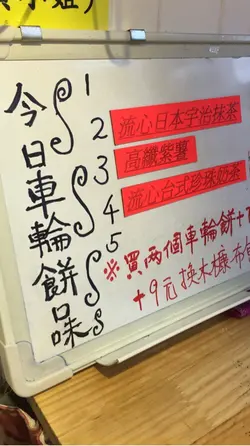 今日車輪餅口味
1
2 流心日本宇治抹茶
3 高纖紫薯
4 流心台式珍珠奶茶
5
※買兩個車輪餅+7
+9元換木糠布